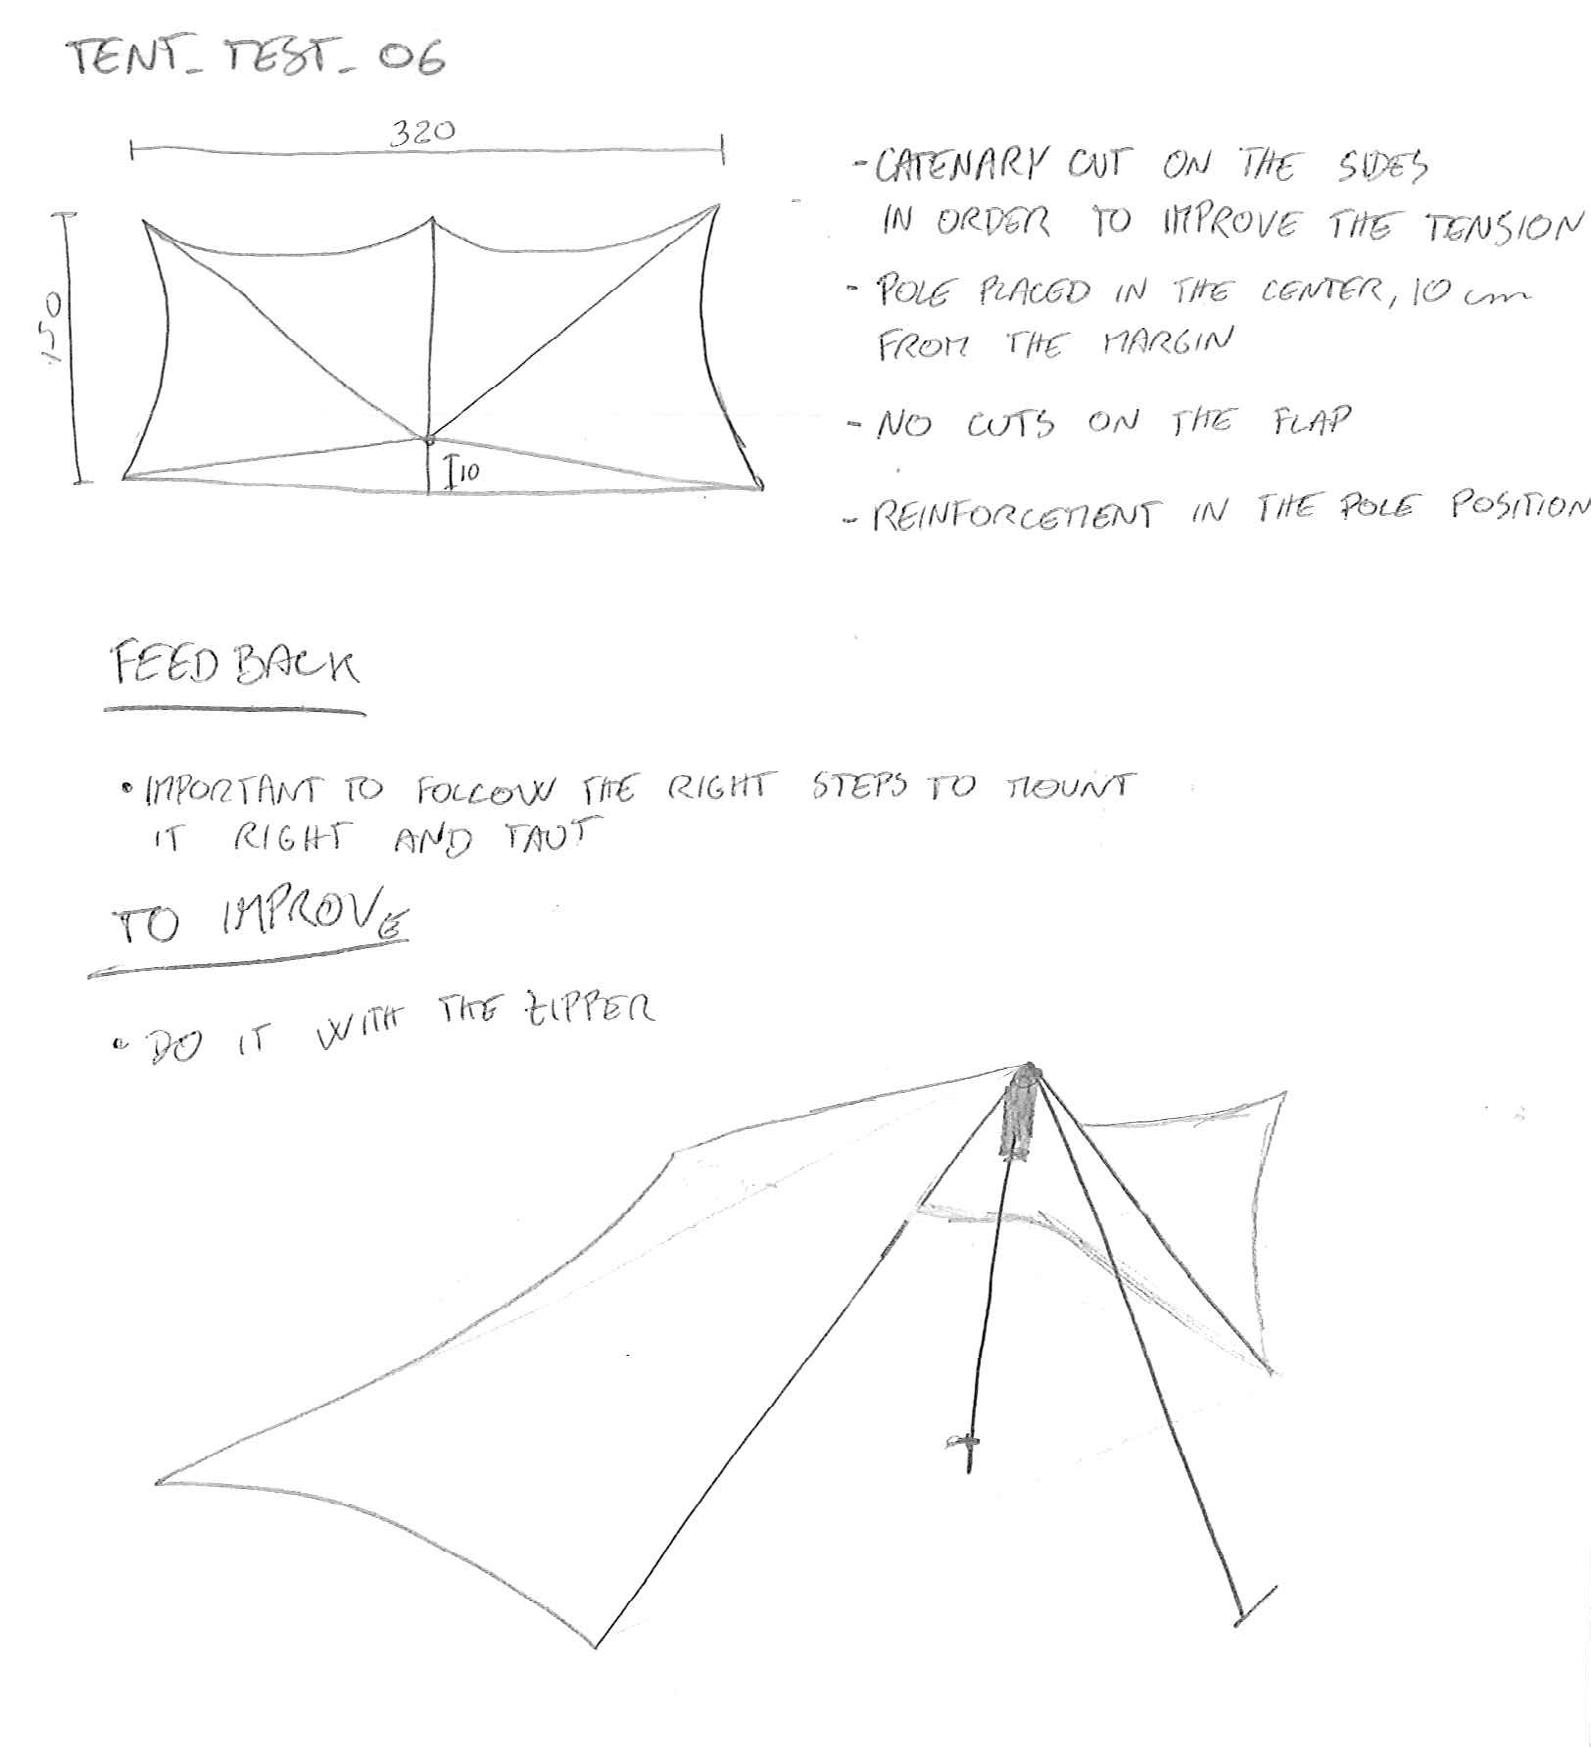 TENT_TEST_06
320
150
I10
- CATENARY CUT ON THE SIDES
IN ORDER TO IMPROVE THE TENSION
- POLE PLACED IN THE CENTER, 10 cm
FROM THE MARGIN
- NO CUTS ON THE FLAP
- REINFORCEMENT IN THE POLE POSITION
FEEDBACK
• IMPORTANT TO FOLLOW THE RIGHT STEPS TO MOUNT
IT RIGHT AND TAUT
TO IMPROVE
• DO IT WITH THE ZIPPER